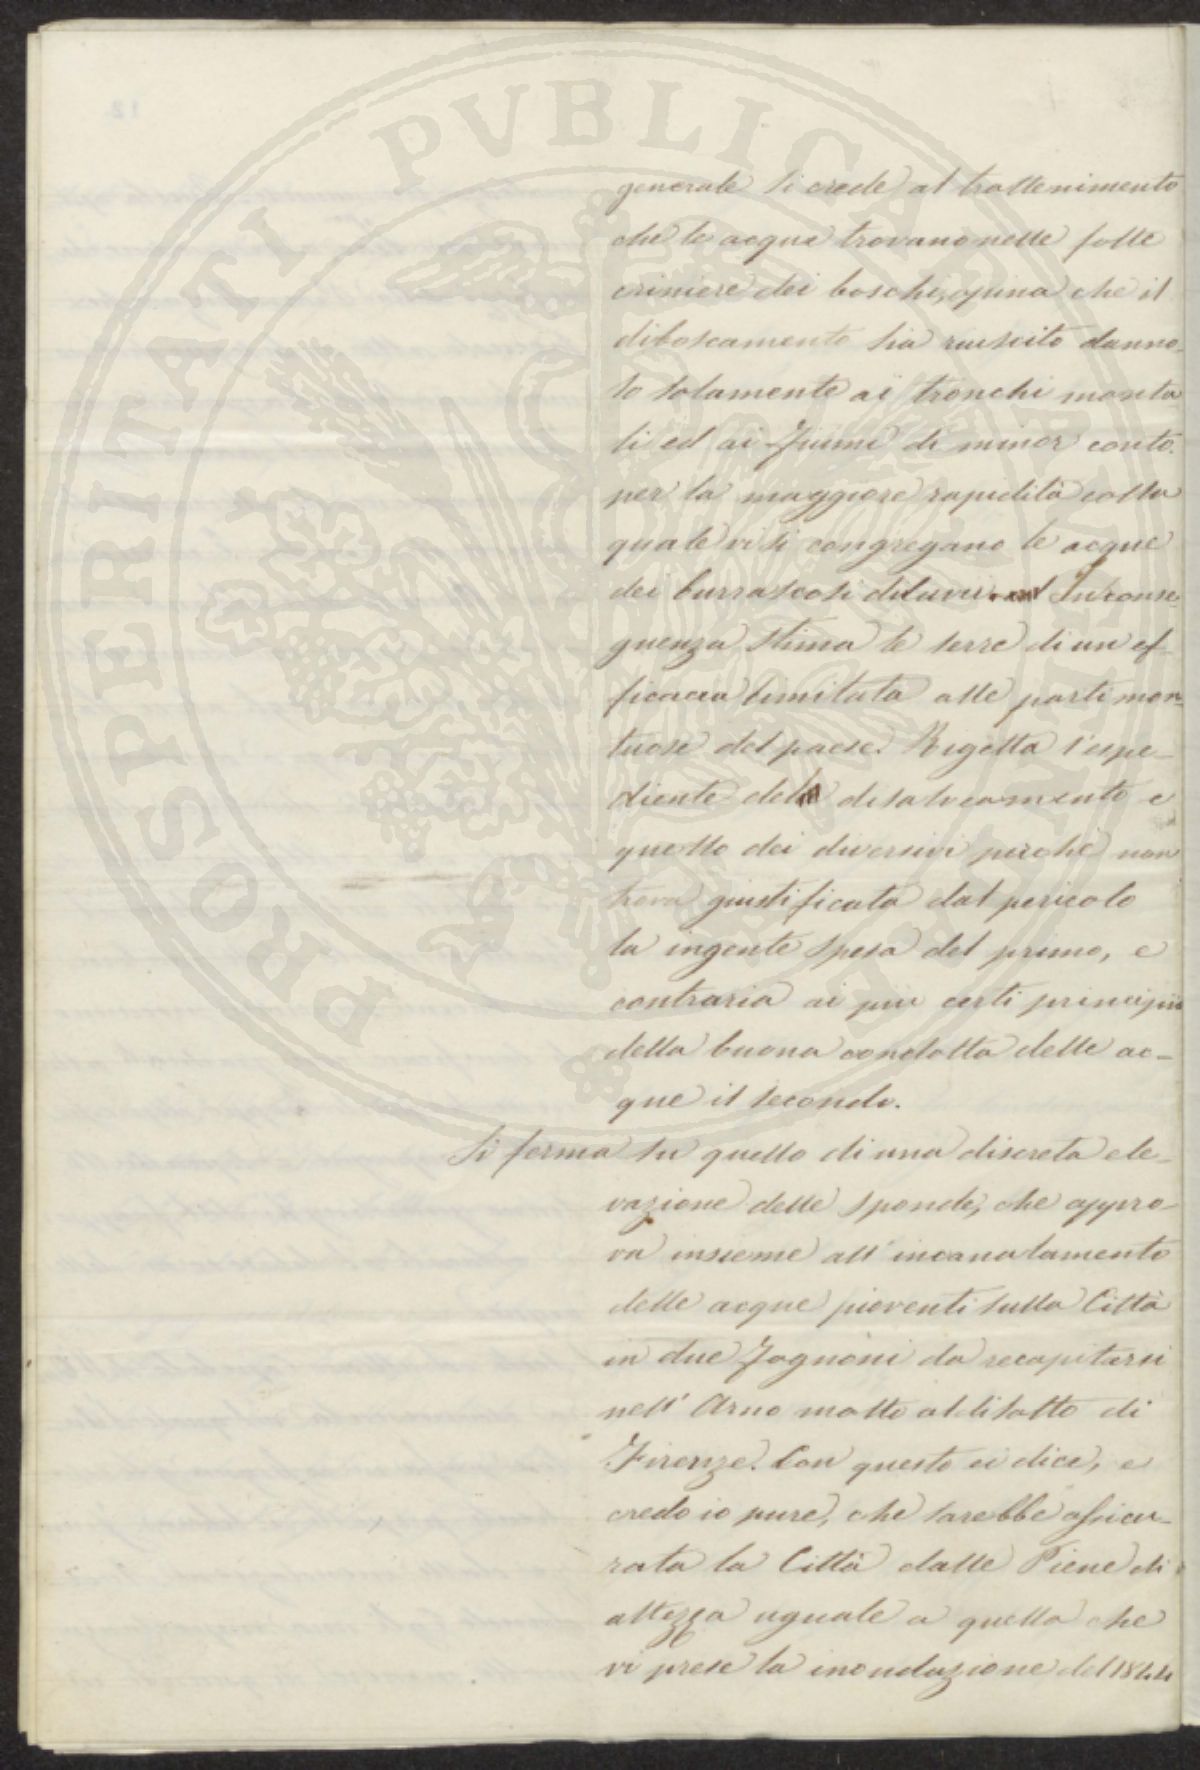 PROSPERITATI PVBLICAE
generale si crede al trattenimento
che le acque trovano nelle folte
criniere dei boschi, opina che il
diboscamento sia riuscito danno-
so solamente ai tronchi monta
ti ed ai Fiumi di minor conto
per la maggiore rapidità colla
quale vi si congregano le acque
dei burrascosi diluvi. In conse-
guenza stima le serre di un ef-
ficacia limitata alle parti mon-
tuose del paese. Rigetta l'espe-
diente del disalveamento e
quello dei diversivi perché non
trova giustificata dal pericolo
la ingente spesa del primo, e
contraria ai più certi principii
della buona condotta delle ac-
que il secondo.
Si ferma su quello di una discreta ele-
vazione delle sponde, che appro-
va insieme all'incanalamento
delle acque pioventi sulla Città
in due Fognoni da recapitarsi
nell'Arno molto al disotto di
Firenze. Con questo ei dice, e
credo io pure, che sarebbe assicu-
rata la Città dalle Piene di
altezza uguale a quella che
vi prese la inondazione del 1844